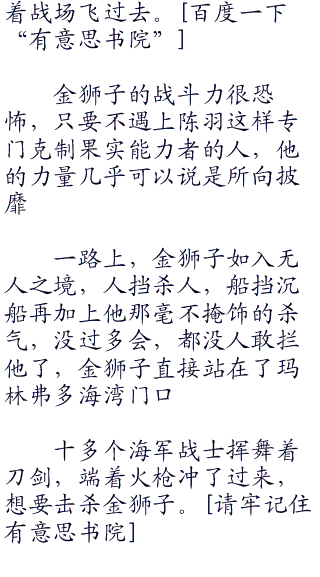 着战场飞过去。[百度一下
“有意思书院”]
金狮子的战斗力很恐
怖，只要不遇上陈羽这样专
门克制果实能力者的人，他
的力量几乎可以说是所向披
靡
一路上，金狮子如入无
人之境，人挡杀人，船挡沉
船再加上他那毫不掩饰的杀
气，没过多会，都没人敢拦
他了，金狮子直接站在了玛
林弗多海湾门口
十多个海军战士挥舞着
刀剑，端着火枪冲了过来，
想要击杀金狮子。[请牢记住
有意思书院]